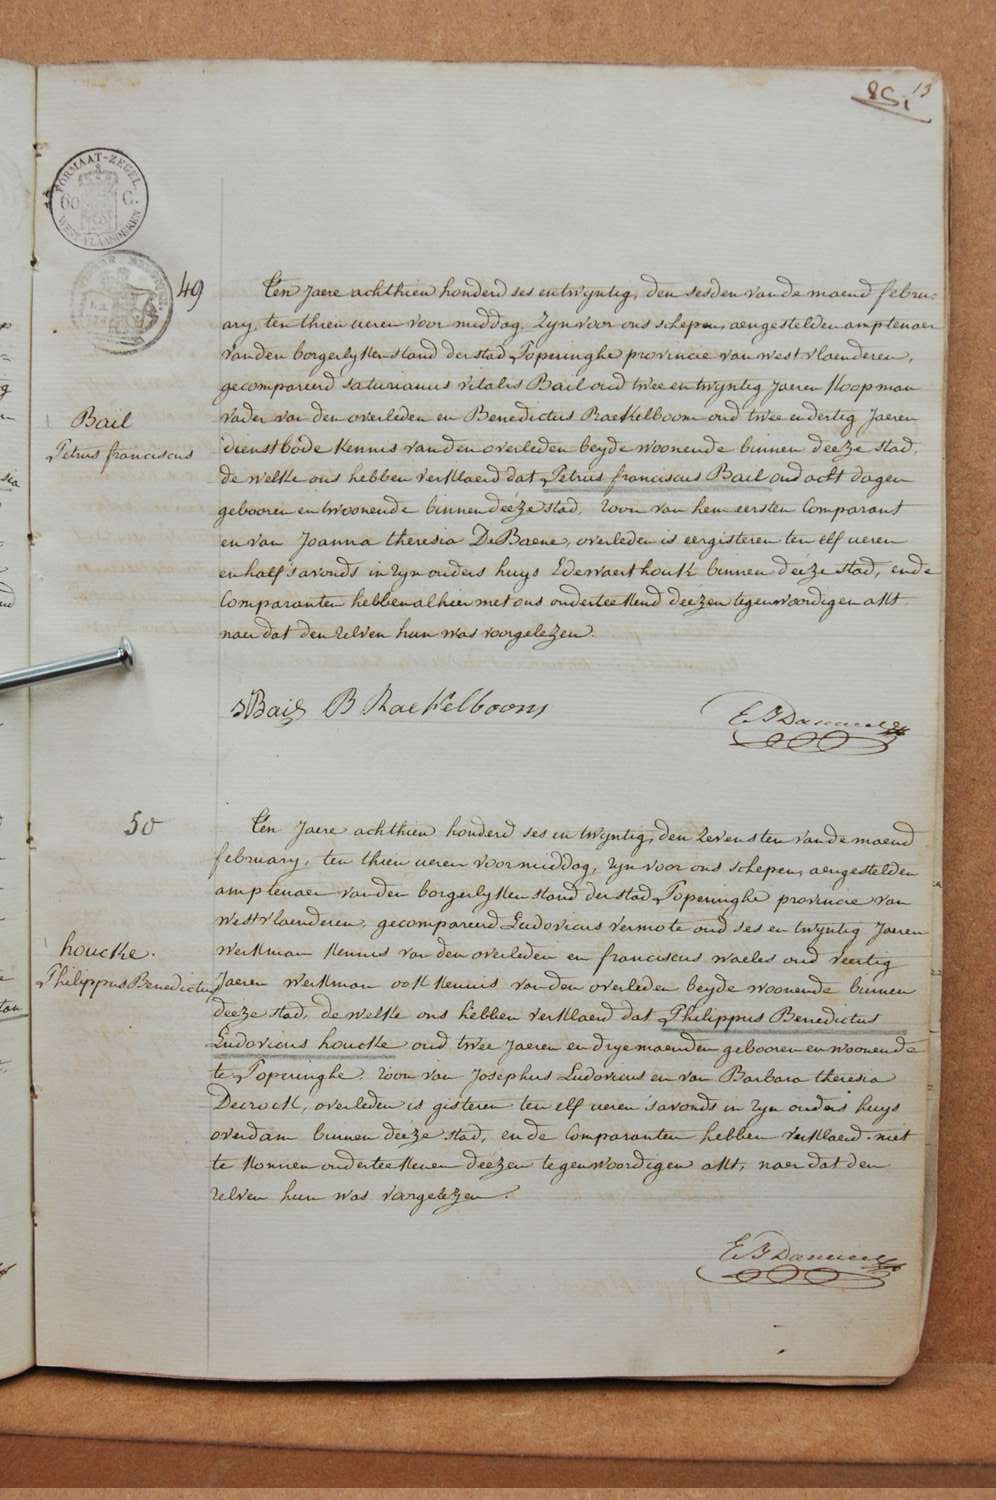 13
FORMAAT-ZEGEL
60 C.
WEST VLAANDEREN
49
Ten Jaere achthien honderd ses en twyntig, den sesden van de maend febru-
ary, ten thien ueren voormiddag, Zyn voor ons schepen, aengestelden amptenaer
van den borgerlyken stand der stad Poperinghe provincie van westvlaenderen,
gecompareerd saturianus vitalis Bail oud twee en twyntig Jaeren Koopman
vader van den overleden en Benedictus Raekelboom oud twee endertig Jaeren
dienstbode kennis van den overleden beyde woonende binnen deéze stad,
de welke ons hebben verklaerd dat Petrus franciscus Bail oud acht dagen
gebooren en woonende binnen deéze stad, zoon van hem eersten Comparant
en van Joanna theresia De Baene, overleden is eergisteren ten elf ueren
en half s'avonds in zyn ouders huys Edewaerthouk binnen deéze stad, en de
Comparanten hebben alhier met ons onderteekend deezen tegenwoordigen akt,
naer dat den zelven hun was voorgelezen.
Bail
Petrus franciscus
Bail B Raekelboom
50
Ten Jaere achthien honderd ses en twyntig, den zevensten van de maend
february, ten thien ueren voormiddag, zyn voor ons schepen, aengestelden
amptenaer van den borgerlyken stand der stad Poperinghe provincie van
westvlaenderen, gecompareerd Ludovicus vermote oud ses en twyntig Jaeren
werkman kennis van den overleden en franciscus waeles oud veertig
Jaeren werkman ook kennis van den overleden beyde woonende binnen
deéze stad, de welke ons hebben verklaerd dat Philippus Benedictus
Ludovicus houcke oud twee Jaeren en drye maenden gebooren en woonende
te Poperinghe, zoon van Josephus Ludovicus en van Barbara theresia
Decrock, overleden is gisteren ten elf ueren s'avonds in zyn ouders huys
overdam binnen deéze stad, en de Comparanten hebben verklaerd niet
te konnen onderteekenen deézen tegenwoordigen akt, naer dat den
zelven hun was voorgelezen.
houcke.
Philippus Benedictus